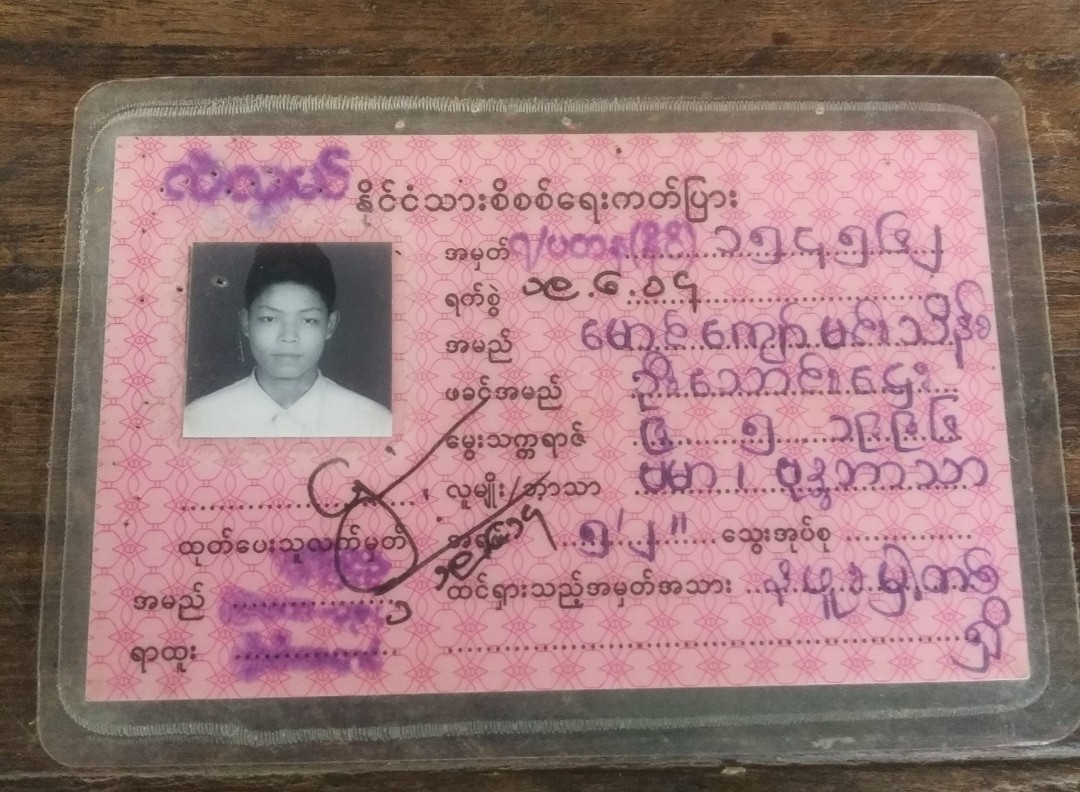 နိုင်ငံသားစိစစ်ရေးကတ်ပြား
အမှတ် ၇/ပတန(နိုင်) ၁၅၄၅၆၂
ရက်စွဲ ၁၉.၆.၁၄
အမည် မောင်ကျော်မင်းသိန်း
ဖခင်အမည် ဦးသောင်းဌေး
မွေးသက္ကရာဇ် ၆ ၅ ၁၉၉၆
လူမျိုး/ဘာသာ ဗမာ၊ ဗုဒ္ဓဘာသာ
ထုတ်ပေးသူလက်မှတ်
အရပ် ၅' ၂" သွေးအုပ်စု
ထင်ရှားသည့်အမှတ်အသား
အမည်
ရာထူး
ရှိ